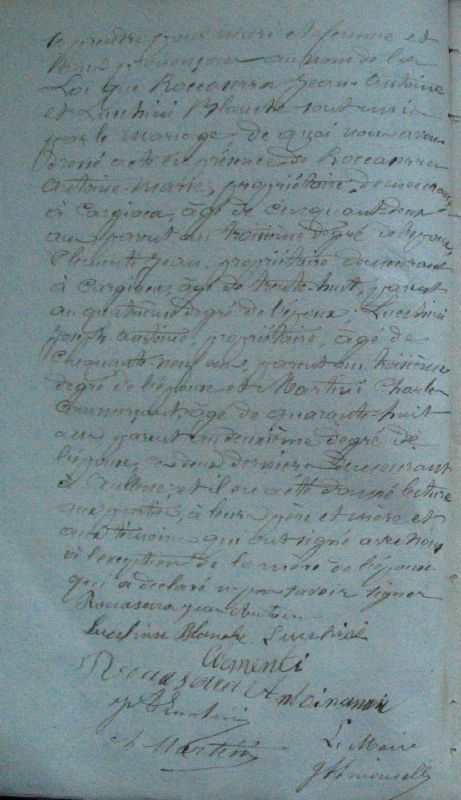 se prendre pour mari et femme et
nous prononçons au nom de la
Loi que Roccaserra Jean Antoine
et Lucchini Blanche sont unis
par le mariage - de quoi nous avons
dressé acte en présence de Roccaserra
Antoine Marie, propriétaire, demeurant
à Cargiaca, âgé de cinquant deux
ans parent au troisième degré de l'époux,
Clementi Jean, propriétaire demeurant
à Cargiaca, âgé de trente-huit, parent
au quatrième degré de l'époux. Lucchini
Joseph Antoine, propriétaire, âgé de
Cinquante-neuf ans, parent au troisième
degré de l'épouse et Martini Charles
âgé de quarante-huit
ans parent au deuxième degré de
l'épouse, ces deux derniers demeurant
à Aullène, et il en a été donné lecture
aux parties, à leurs père et mère et
aux témoins qui ont signé avec nous
à l'exception de la mère de l'épouse
qui a déclaré ne pas savoir signer
Rocaserra Jean Antoine
Lucchini Blanche Lucchini
Clementi
Rocaserra Antoine
Lucchini
Martini
Le Maire